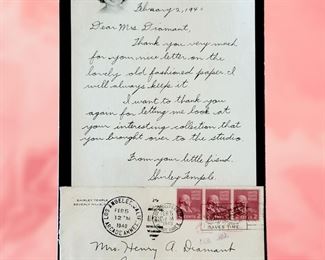 February 2, 194
Dear Mrs. Dramant,
Thank you very much
for your nice letter on the
lovely old fashioned paper. I
will always keep it.
I want to thank you
again for letting me look at
your interesting collection that
you brought over to the studio.
From your little friend,
Shirley Temple
SHIRLEY TEMPLE
BEVERLY HILLS
LOS ANGELES, CALIF.
FEB 5
12 PM
1940
ARCADE ANNEX
SAVES TIME
Mrs. Henry A. Dramant